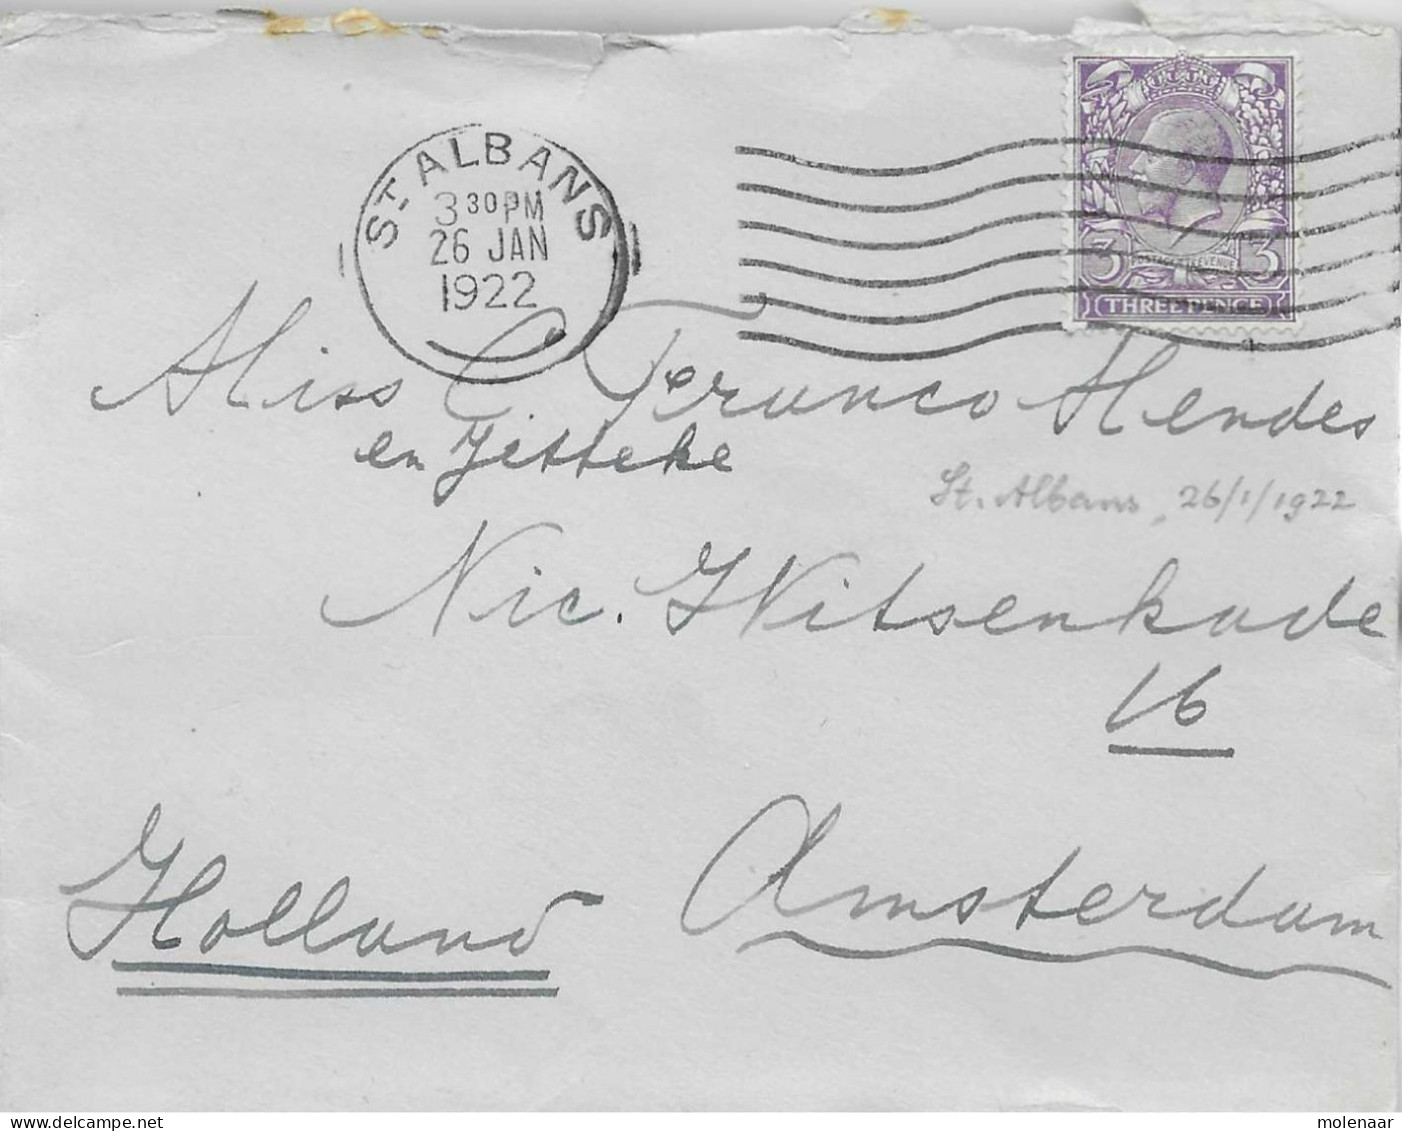 ST ALBANS
3 30 PM
26 JAN
1922
3 POSTAGE REVENUE 3
THREE PENCE
Miss C. Franco Mendes
en Jetteke
St. Albans, 26/1/1922
Nic. Witsenkade
16
Holland
Amsterdam
molenaar